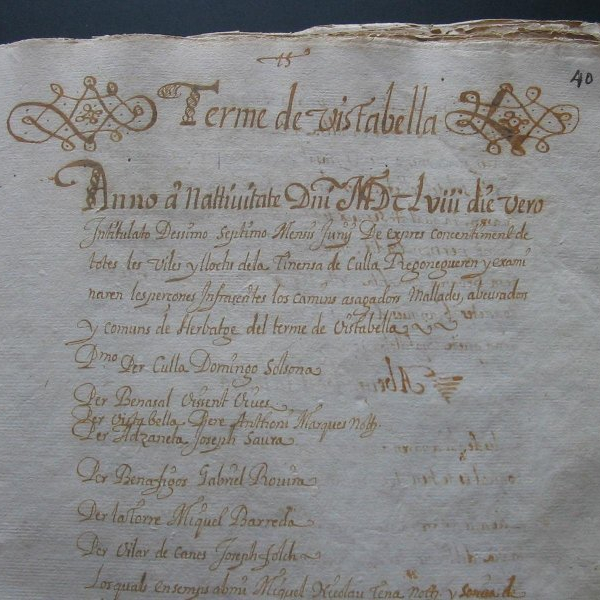 40
Terme de vistabella
Anno a Nattiuitate Dnĩ MDCLviii die vero
Intitulato Dessimo septimo Mensis Junij De expres consentiment de
totes les Viles y llochs dela Tinensa de Culla Regonegueren y exami
naren les persones Infrascrites los camins asagadors Mallades, abeuradors
y comuns de Herbatge del terme de Vistabella
Pmo Per Culla Domingo Solsona
Per Benasal Vissent Viues
Per Vistabella Pere Anttoni Marques Noth.
Per Adzaneta Joseph Saura
Per Benafigos Gabriel Rouira
Per la torre Miquel Barreda
Per Vilar de Canes Joseph folch
Los quals ensemps ab mi Miquel Nicolau Tena Noth. y